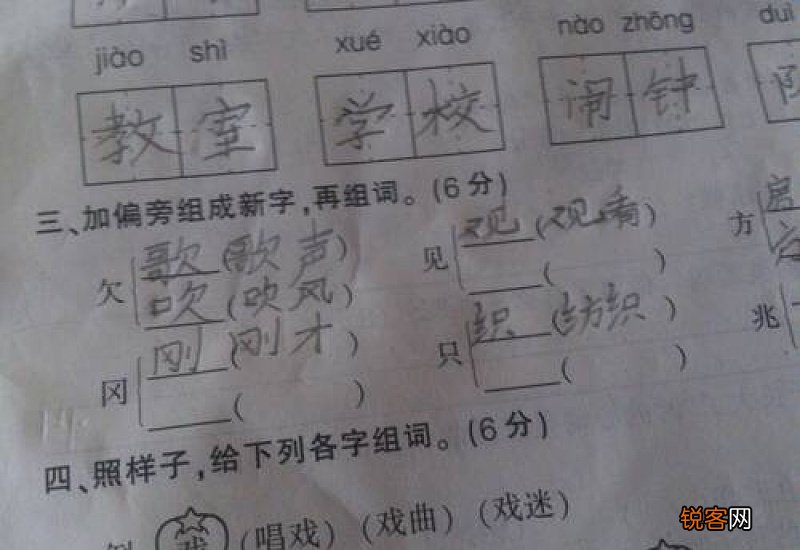 jiào shì xué xiào nào zhōng duì
教室 学校 闹钟
三、加偏旁组成新字,再组词。(6分)
欠 歌(歌声) 见 观(观看) 方
吹(吹风) ( )
冈 刚(刚才) 只 织(纺织) 兆
( ) ( )
四、照样子,给下列各字组词。(6分)
例 戏 (唱戏) (戏曲) (戏迷)
锐客网